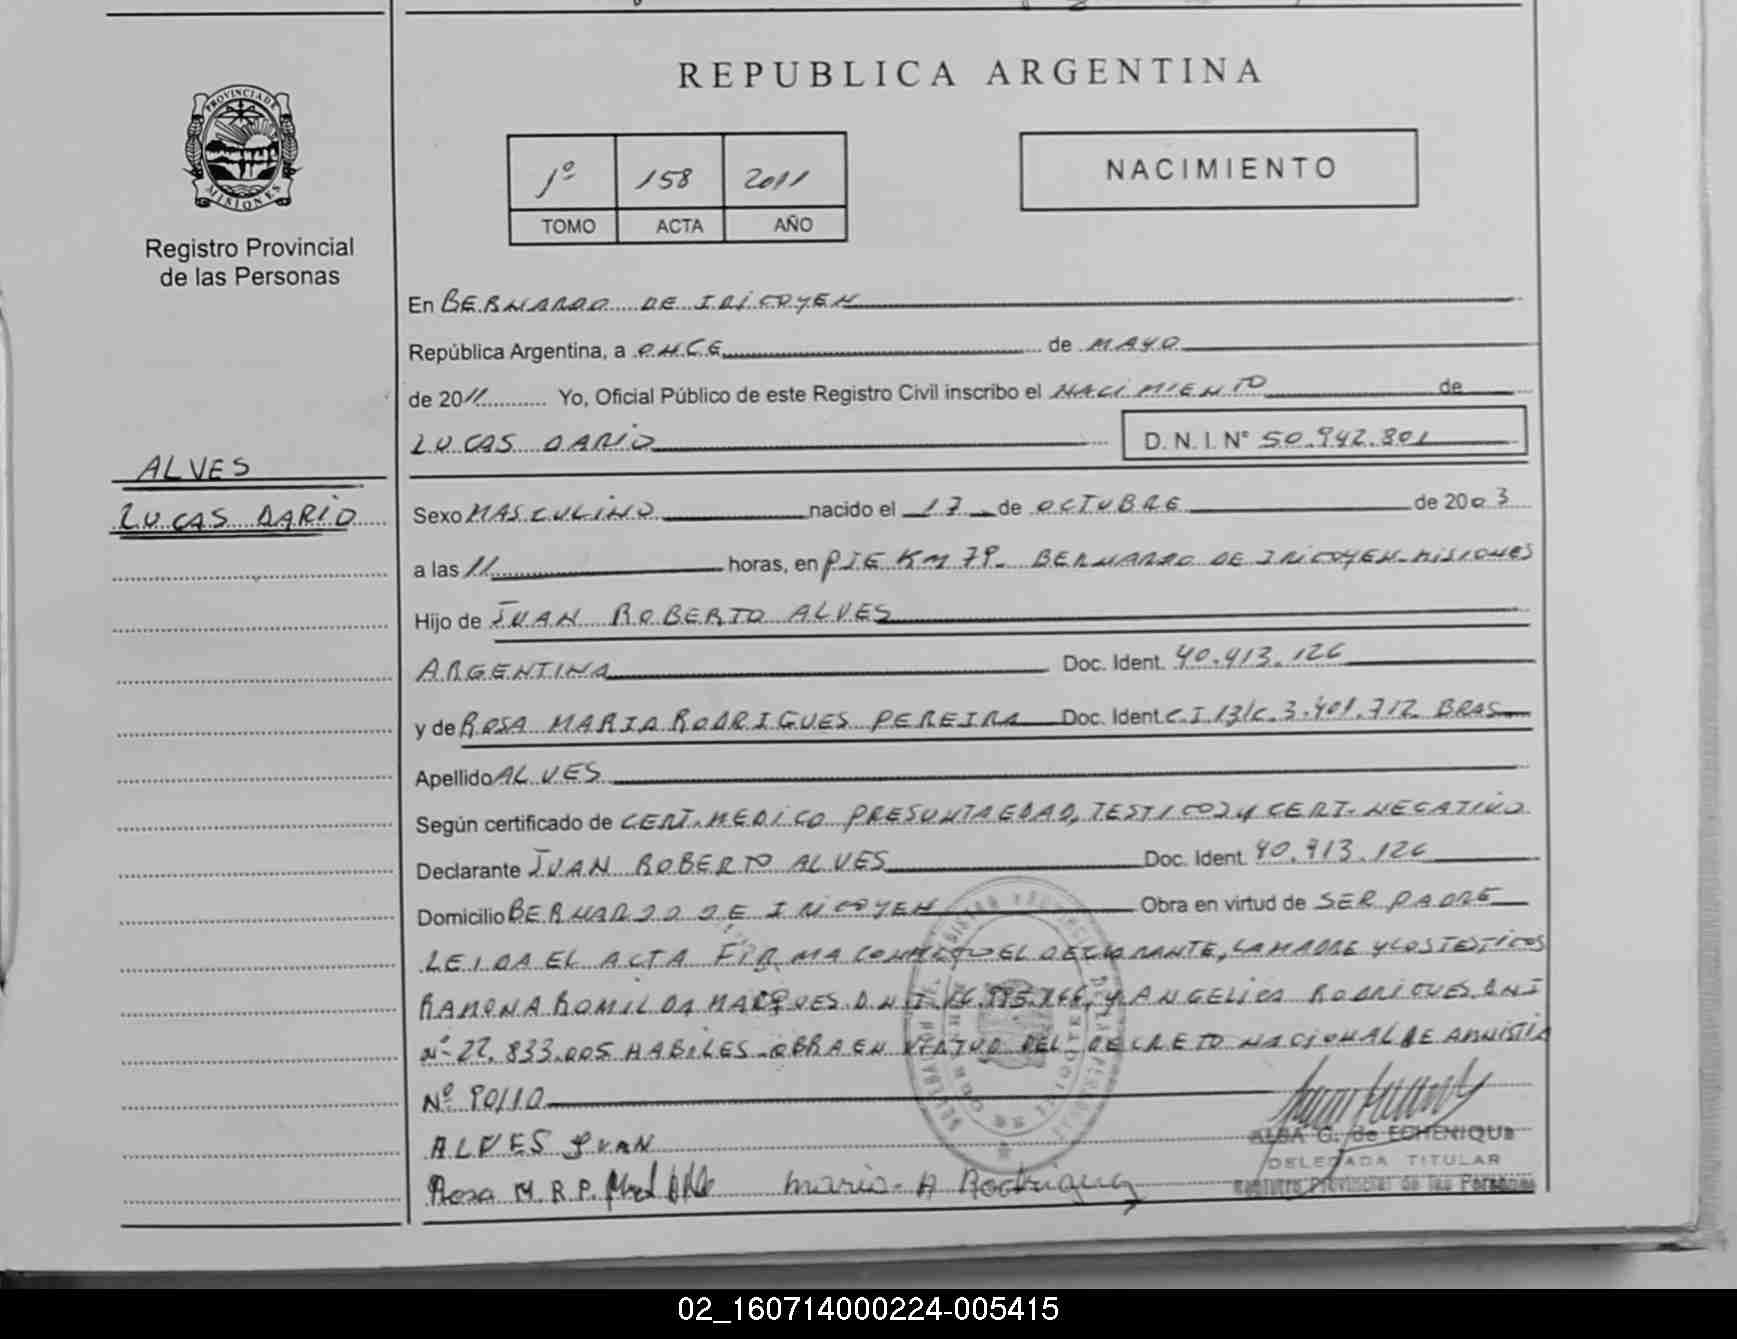 REPUBLICA ARGENTINA
PROVINCIA DE
MISIONES
Registro Provincial
de las Personas
1º 158 2011
TOMO ACTA AÑO
NACIMIENTO
En BERNARDO DE IRIGOYEN
República Argentina, a ONCE de MAYO
de 2011 Yo, Oficial Público de este Registro Civil inscribo el NACIMIENTO de
LUCAS DARIO D. N. I. Nº 50.942.801
ALVES
LUCAS DARIO
Sexo MASCULINO nacido el 17 de OCTUBRE de 2003
a las 11 horas, en PJE KM 79- BERNARDO DE IRIGOYEN-MISIONES
Hijo de JUAN ROBERTO ALVES
ARGENTINA Doc. Ident. 40.413.126
y de ROSA MARIA RODRIGUES PEREIRA Doc. Ident C.I. 13/C. 3.401.712 BRAS
Apellido ALVES
Según certificado de CERT. MEDICO PRESUNTA EDAD, TESTIGOS Y CERT. NEGATIVO
Declarante JUAN ROBERTO ALVES Doc. Ident. 40.413.126
Domicilio BERNARDO DE IRIGOYEN Obra en virtud de SER PADRE
LEIDA EL ACTA FIRMA CONMIGO EL DECLARANTE, LA MADRE Y LOS TESTIGOS
RAMONA ROMILDA MARQUES D.N.I. Y ANGELICA RODRIGUES DNI
Nº 22.833.005 HABILES-OBRA EN VIRTUD DEL DECRETO NACIONAL DE AMNISTIA
Nº 90/10
ALVES JUAN
Rosa M. R. P. Maria A Rodrigues
ALBA G. de ECHENIQUE
DELEGADA TITULAR
Registro Provincial de las Personas
02_160714000224-005415